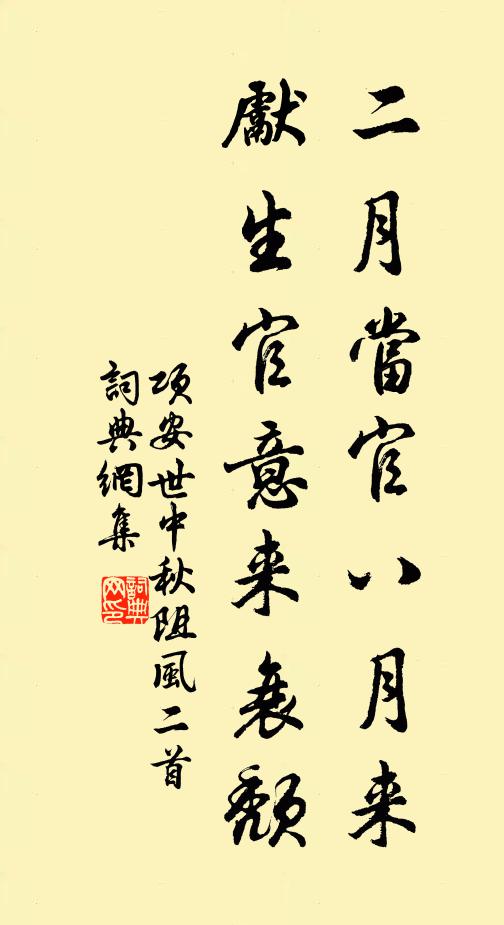 二月當官八月来
獻生官意来衰頹
項安世中秋阻風二首
詞典網集
詞典网印